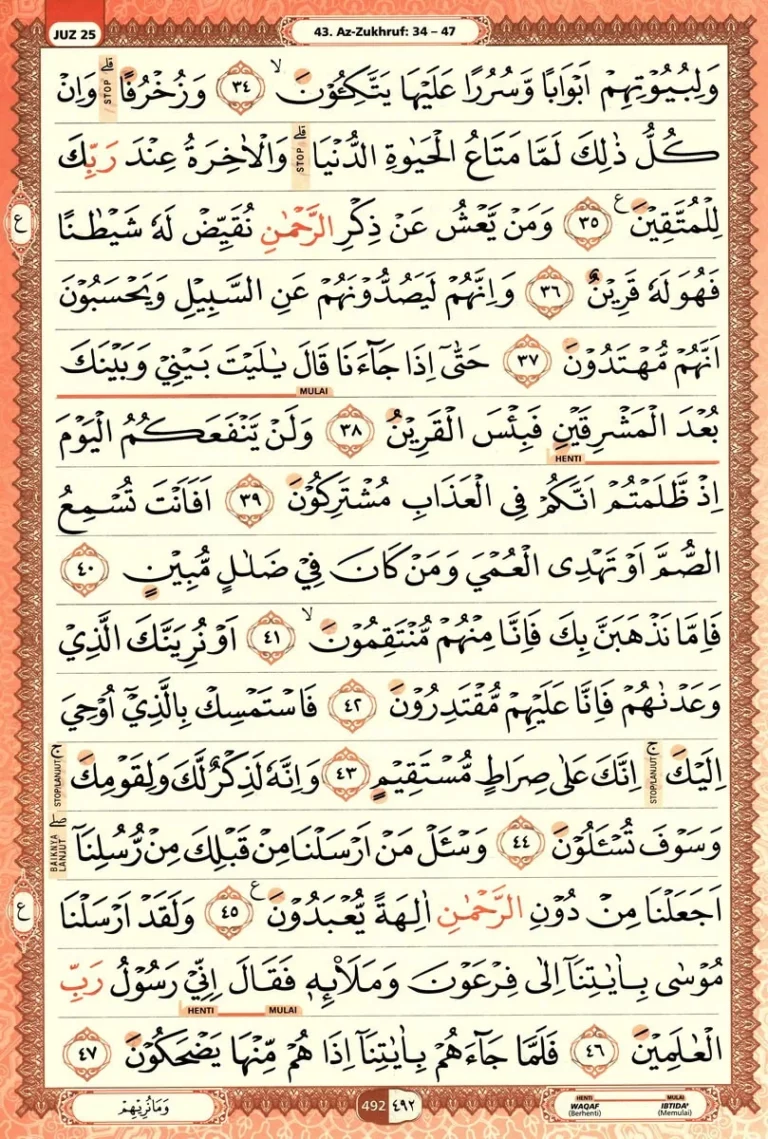 JUZ 25
43. Az-Zukhruf: 34 – 47
وَلِبُيُوْتِهِمْ اَبْوَابًا وَّسُرُرًا عَلَيْهَا يَتَّكِـُٔوْنَ ۙ ٣٤ وَزُخْرُفًا ۗ STOP وَاِنْ
كُلُّ ذٰلِكَ لَمَّا مَتَاعُ الْحَيٰوةِ الدُّنْيَا ۗ STOP وَالْاٰخِرَةُ عِنْدَ رَبِّكَ
ع لِلْمُتَّقِيْنَ ࣖ ٣٥ وَمَنْ يَّعْشُ عَنْ ذِكْرِ الرَّحْمٰنِ نُقَيِّضْ لَهٗ شَيْطٰنًا
فَهُوَ لَهٗ قَرِيْنٌ ٣٦ وَاِنَّهُمْ لَيَصُدُّوْنَهُمْ عَنِ السَّبِيْلِ وَيَحْسَبُوْنَ
اَنَّهُمْ مُّهْتَدُوْنَ ٣٧ حَتّٰىٓ اِذَا جَاۤءَنَا قَالَ يٰلَيْتَ بَيْنِيْ وَبَيْنَكَ
MULAI
بُعْدَ الْمَشْرِقَيْنِ فَبِئْسَ الْقَرِيْنُ ٣٨ وَلَنْ يَّنْفَعَكُمُ الْيَوْمَ
HENTI
اِذْ ظَّلَمْتُمْ اَنَّكُمْ فِى الْعَذَابِ مُشْتَرِكُوْنَ ٣٩ اَفَاَنْتَ تُسْمِعُ
الصُّمَّ اَوْ تَهْدِى الْعُمْيَ وَمَنْ كَانَ فِيْ ضَلٰلٍ مُّبِيْنٍ ٤٠
فَاِمَّا نَذْهَبَنَّ بِكَ فَاِنَّا مِنْهُمْ مُّنْتَقِمُوْنَ ۙ ٤١ اَوْ نُرِيَنَّكَ الَّذِيْ
وَعَدْنٰهُمْ فَاِنَّا عَلَيْهِمْ مُّقْتَدِرُوْنَ ٤٢ فَاسْتَمْسِكْ بِالَّذِيْٓ اُوْحِيَ
اِلَيْكَ ۚ STOP/LANJUT اِنَّكَ عَلٰى صِرَاطٍ مُّسْتَقِيْمٍ ٤٣ وَاِنَّهٗ لَذِكْرٌ لَّكَ وَلِقَوْمِكَ ۚ STOP/LANJUT
وَسَوْفَ تُسْـَٔلُوْنَ ٤٤ وَسْـَٔلْ مَنْ اَرْسَلْنَا مِنْ قَبْلِكَ مِنْ رُّسُلِنَآ ۖ BAIKNYA LANJUT
ع اَجَعَلْنَا مِنْ دُوْنِ الرَّحْمٰنِ اٰلِهَةً يُّعْبَدُوْنَ ࣖ ٤٥ وَلَقَدْ اَرْسَلْنَا
مُوْسٰى بِاٰيٰتِنَآ اِلٰى فِرْعَوْنَ وَمَلَا۟ىِٕهٖ فَقَالَ اِنِّيْ رَسُوْلُ رَبِّ
MULAI HENTI
الْعٰلَمِيْنَ ٤٦ فَلَمَّا جَاۤءَهُمْ بِاٰيٰتِنَآ اِذَا هُمْ مِّنْهَا يَضْحَكُوْنَ ٤٧
وَمَا نُرِيْهِمْ
492 ٤٩٢
HENTI MULAI
WAQAF IBTIDA'
(Berhenti) (Memulai)